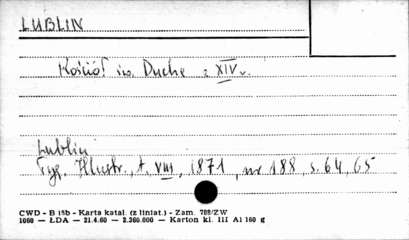 LUBLIN
Kościół św. Ducha z XIV w.
Lublin
Tyg. Illustr., t. VIII, 1871, nr 188, s. 64, 65
CWD - B 15b - Karta katal. (z liniat.) - Zam. 788/ZW
1060 — ŁDA — 21.4.60 — 2.360.000 — Karton kl. III A1 160 g